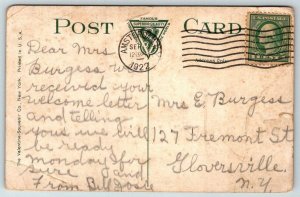 POST CARD
FAMOUS
AMSTERDAM
SEP
12
1922
CENTS
The Valentine-Souvenir Co. New York. Printed in U.S.A.
Dear Mrs
Burgess we
received your
welcome letter
and telling
you we will
be ready
Monday for
sure and
From Bill
Mrs E. Burgess
127 Fremont St
Gloversville.
N.Y.